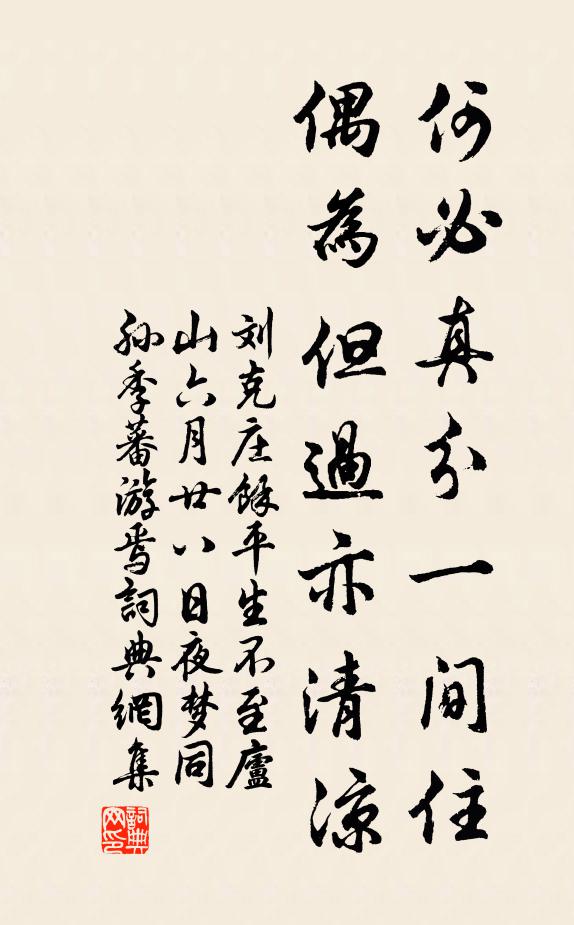 何必真分一间住
偶為但過亦清涼
刘克庄餘平生不至廬
山六月廿八日夜梦同
孙季蕃游焉詞典網集
詞典
网印